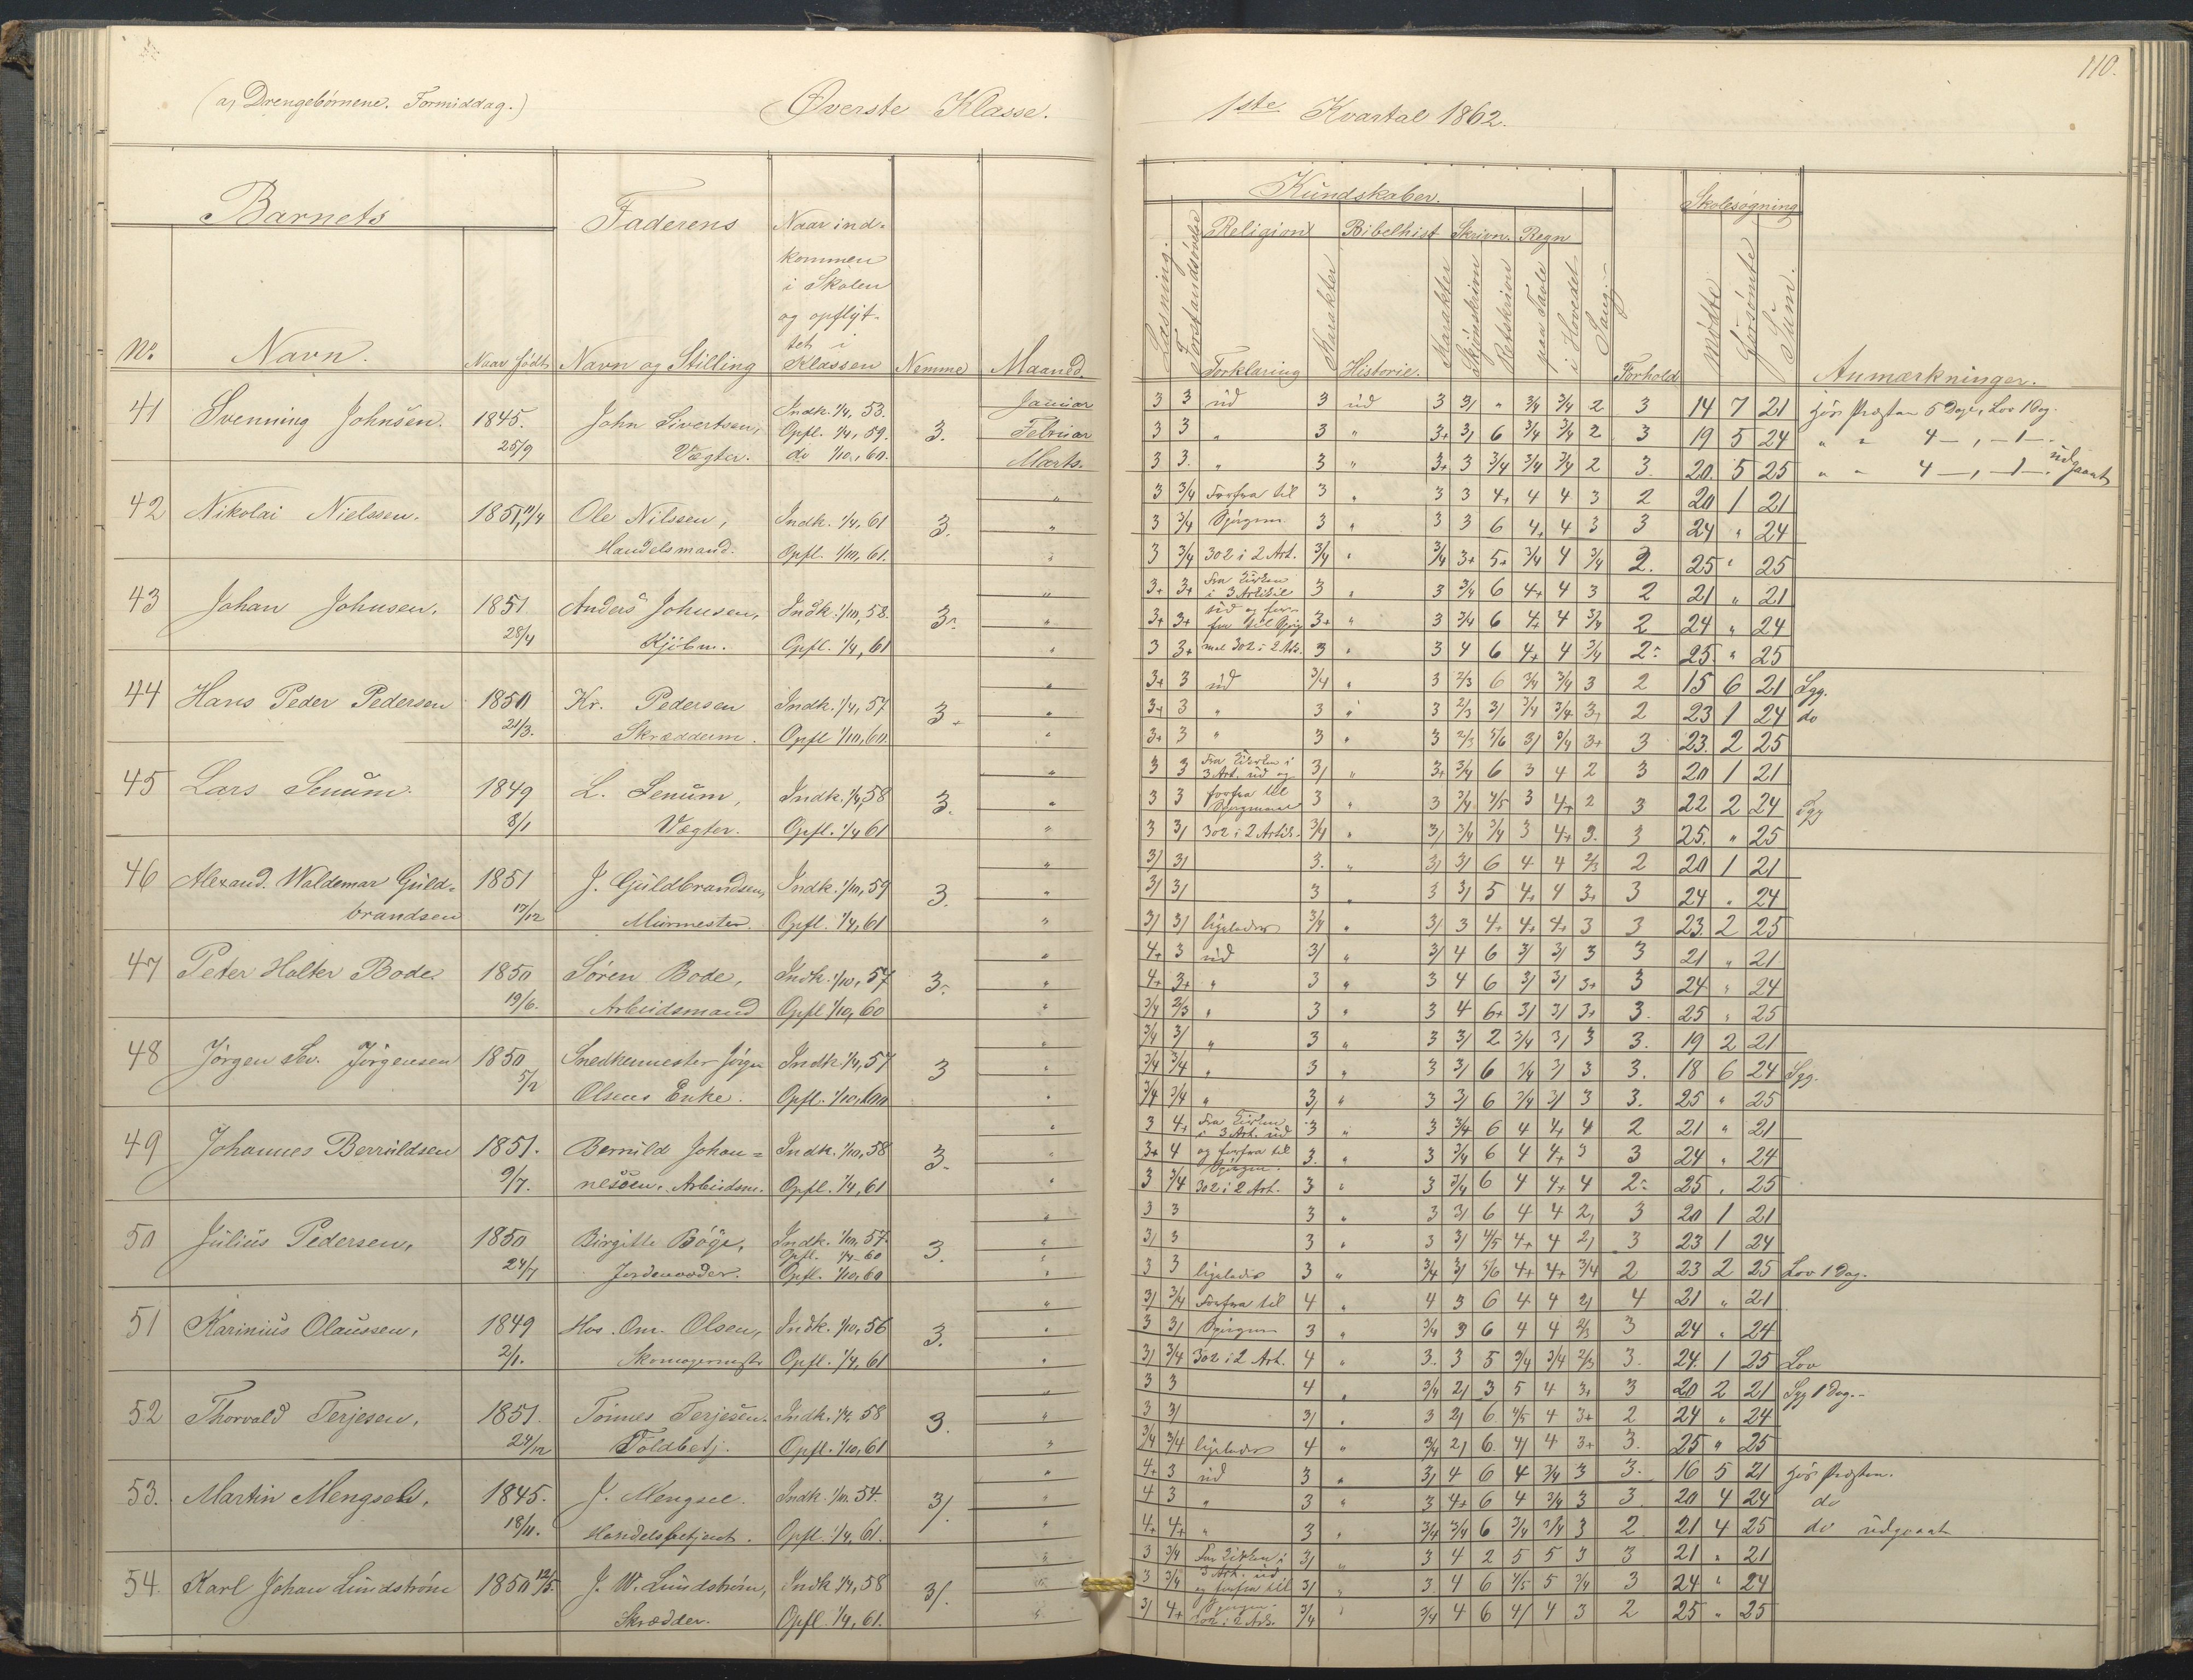 110.
(a, Drengebörnene. Formiddag.) Øverste Klasse.
1ste Kvartal 1862.
Barnets Faderens Naar ind-
kommen
i Skolen
og opflyt-
tet i
No. Navn. Naar Född Navn og Stilling Klassen Nemme Maaned.
Kundskaber. Skolesøgning
Religion Bibelhist Skrivn. Regn
Læsning. Forstandsøvelse Forklaring Karakter Historie. Karakter Skjönskrivn Retskrivn paa Tavle i Hovedet Sang. Forhold mødte forsømte Sum. Anmærkninger.
41 Svenning Johnsen. 1845. John Sivertsen, Indk. 1/4, 53. Januar
25/9 Opfl. 1/4, 59. 3. Februar
Vægter. do 1/10, 60. Marts.
3 3 ud 3 ud 3 3/ " 3/4 3/4 2 3 14 7 21 hos Præsten 5 Dage, Lov 1 Dag.
3 3 " 3 " 3+ 3/ 6 3/4 3/4 2 3 19 5 24 " " 4 —, — 1 —
3 3. " 3 " 3+ 3 3/4 3/4 3/4 2 3. 20. 5 25 " " 4 —, — 1 —. udgaaet
42 Nikolai Nielssen. 1851, 11/4 Ole Nilssen, Indk. 1/4, 61 3.
Handelsmand. Opfl. 1/10, 61.
3 3/4 Forfra til 3 " 3 3 4+ 4 4 3 2 20 1 21
3 3/4 3 " 3 3 6 4+ 4 3 3 24 " 24
3 3/4 302 i 2 Art. 3/4 " 3/4 3+ 5+ 3/4 4 3/4 2. 25 " 25
43 Johan Johnsen. 1851 Anders Johnsen, Indk. 1/10, 58. 3.
28/4 Kjöbm. Opfl. 1/4, 61
3+ 3+ i 3 3 " 3 3/4 6 4+ 4 3 2 21 " 21
3+ 3+ ud og for- 3+ " 3 3/4 6 4+ 4 3/4 2 24 " 24
3 3+ 302 i 2 3 " 3 4 6 4+ 4 3/4 2. 25. " 25
44 Hans Peder Pedersen 1850 Kr. Pedersen Indk. 1/4, 57 3+
21/3. Skræddern. Opfl 1/10, 60.
3+ 3 ud 3/4 " 3 2/3 6 3/4 3/4 3 2 15 6 21 Syg.
3+ 3 " 3 " 3 2/3 3/ 3/4 3/4 3/ 2 23 1 24 do
3+ 3 " 3 " 3 2/3 5/6 3/ 3/4 3+ 3 23. 2 25
45 Lars Senum. 1849 L. Senum, Indk. 1/4, 58 3.
8/1 Vægter. Opfl. 1/4 61
3 3 3 Art. ud og 3/ " 3+ 3/4 6 3 4 2 3 20 1 21
3 3 forfra til 3 " 3 3/4 4/5 3 4+ 2 3 22 2 24 Syg
3 3/ 302 i 2 3/4 " 3/ 3/4 3/4 3 4+ 3. 3 25. " 25
46 Alexand. Waldemar Guld- 1851 J. Guldbrandsen, Indk. 1/10, 59 3.
brandsen 17/12 Murmester. Opfl. 1/4, 61
3/ 3/ 3. " 3/ 3/ 6 4 4 2/3 2 20 1 21
3/ 3/ 3 " 3 3/ 5 4+ 4 3+ 3 24 " 24
3/ 3/ ligeledes 3/4 " 3/ 3 4+ 4+ 4+ 3 3 23. 2 25
47 Peter Holter Bode. 1850 Sören Bode, Indk. 1/10, 57 3.
19/6. Arbeidsmand Opfl 1/10, 60
4+ 3 ud 3/ " 3/ 4 6 3/ 3/ 3 3 21 " 21
4+ 3+ " 3 " 3 4 6 3/ 3/ 3+ 3 24 " 24
3/4 2/3 " 3 " 3 4 6+ 3/ 3/ 3+ 3. 25 " 25
48 Jörgen Jörgensen 1850 Snedkermester Jörgen Indk. 1/4, 57 3
5/2 Olsens Enke. Opfl. 1/10, 60
3/4 3/ " 3 " 3 3/ 2 3/4 3/ 3 3. 19 2 21
3/4 3/4 " 3 " 3 3/ 6 3/4 3/ 3 3. 18 6 24 Syg.
3/4 3/4 " 3/ " 3 3/ 6 3/4 3/ 3 3. 25 " 25
49 Johannes Berruldsen 1851. Berruld Johan- Indk. 1/10, 58 3.
9/7. nessen, Arbeidsm. Opfl. 1/4, 61
3 4+ i 3 Art. ud 3 " 3 3/4 6 4 4+ 4 2 21 " 21
3+ 4 og forfra til 3. " 3 3/4 6 4 4+ 3 3 24 " 24
3 3/4 302 i 2 Art. 3 " 3 3/4 6 4 4+ 4 2. 25 " 25
50 Julius Pedersen, 1850 Birgitte Böge, Indk. 1/10, 57. 3.
24/7 Opfl. 1/4 60
Jordemoder. Opfl. 1/10, 60
3 3 3 " 3 3/ 6 4 4 2/ 3 20 1 21
3/ 3 3 " 3 3/ 4/5 4+ 4 2/ 3 23 1 24
3 3 ligeledes 3 " 3/4 3/ 5/6 4+ 4+ 3/4 2 23 2 25 Lov 1 Dag.
51 Karinius Olaussen, 1849 Hos. Om. Olsen, Indk. 1/10, 56 3.
2/1. Skomagermstr Opfl. 1/4, 61
3/ 3/4 Forfra til 4 " 4 3 6 4 4 2/ 4 21 " 21
3 3/ 3 " 3/4 3 6 4 4 2/3 3 24 " 24
3/ 3/4 302 i 2 Art. 4 " 3. 3 5 3/4 3/4 2/3 3. 24. 1 25 Lov
52 Thorvald Terjesen, 1851. Tönnes Terjesen. Indk. 1/4, 58 3.
24/12 Toldbetj. Opfl. 1/10, 61
3 3 4 " 3/4 2/ 3 5 4 3+ 3 20 2 21 Syg 1 Dag.
3 3/ 3/ " 3 2/ 6 4/5 4 3+ 2 24 " 24
3/4 3/4 ligeledes 4 " 3/4 2/ 6. 4/ 4 3+ 3. 25 " 25
53. Martin Mengsel, 1845. J. Mengsel. Indk. 1/10. 54. 3/.
18/11. Handelsbetjent. Opfl. 1/4, 61.
4+ 3 ud 3 " 3/ 4 6 4 3/4 3 3. 16 5 21 hos Præsten.
4 3 " 3 " 3 4+ 6 4 3/4 3 3. 20 4 24 do
4+ 4+ " 3 " 3/4 3/4 6 3/4 3/4 3 2. 21 4 25 do udgaaet
54. Karl Johan Lundström 1850 12/5. J. W. Lundström, Indk 1/4, 58 3/.
Skrædder. Opfl. 1/4, 61.
3 3/4 3/ " 3 4 2 5 5 3 3 21 " 21
3 3/4 3 Art. ud og forfra til 3/ " 3. 4 6 4/5 5 3/4 3 24 " 24
3/ 4+ 302 i 2 Art. 3/4 " 3/4 4 6 4/ 4 3 2 25 " 25